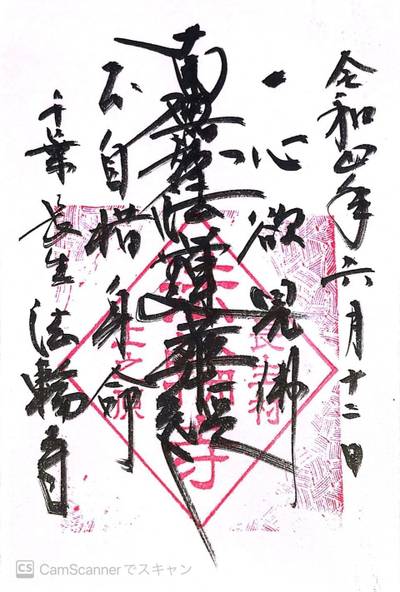 令和四年六月十二日
一心欲見佛
南無妙法蓮華経
不自惜身命
千葉長生法輪寺
CS CamScannerでスキャン